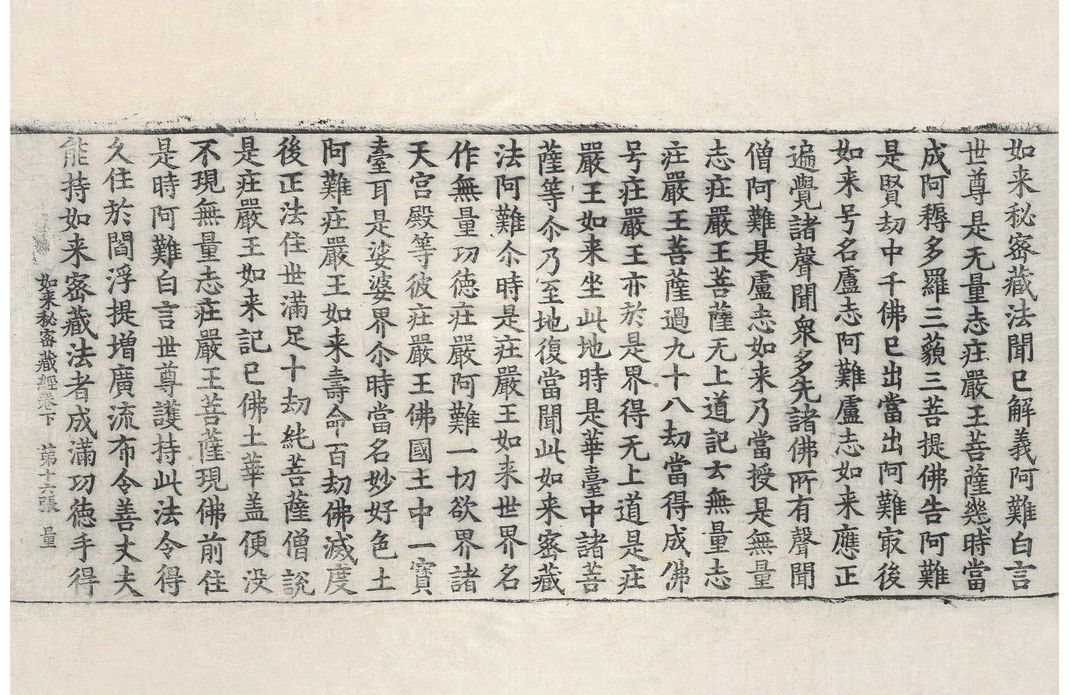 如来秘密藏法聞已解義阿難白言
世尊是无量志疘嚴王菩薩幾時當
成阿耨多羅三藐三菩提佛告阿難
是賢劫中千佛已出當出阿難㝡後
如来号名盧志阿難盧志如来應正
遍覺諸聲聞衆多先諸佛所有聲聞
僧阿難是盧志如来乃當授是無量
志疘嚴王菩薩无上道記云無量志
疘嚴王菩薩過九十八劫當得成佛
号疘嚴王亦於是界得无上道是疘
嚴王如来坐此地時是華臺中諸菩
薩等尒乃至地復當聞此如来密藏
法阿難尒時是疘嚴王如来世界名
作無量功徳疘嚴阿難一切欲界諸
天宫殿等彼疘嚴王佛國土中一寶
臺耳是娑婆界尒時當名妙好色土
阿難疘嚴王如来壽命百劫佛滅度
後正法住世滿足十劫純菩薩僧說
是疘嚴王如来記已佛土華盖便没
不現無量志疘嚴王菩薩現佛前住
是時阿難白言世尊護持此法令得
久住於閻浮提增廣流布令善丈夫
能持如来密藏法者成滿功徳手得
如来秘密藏經卷下 第十六張 量